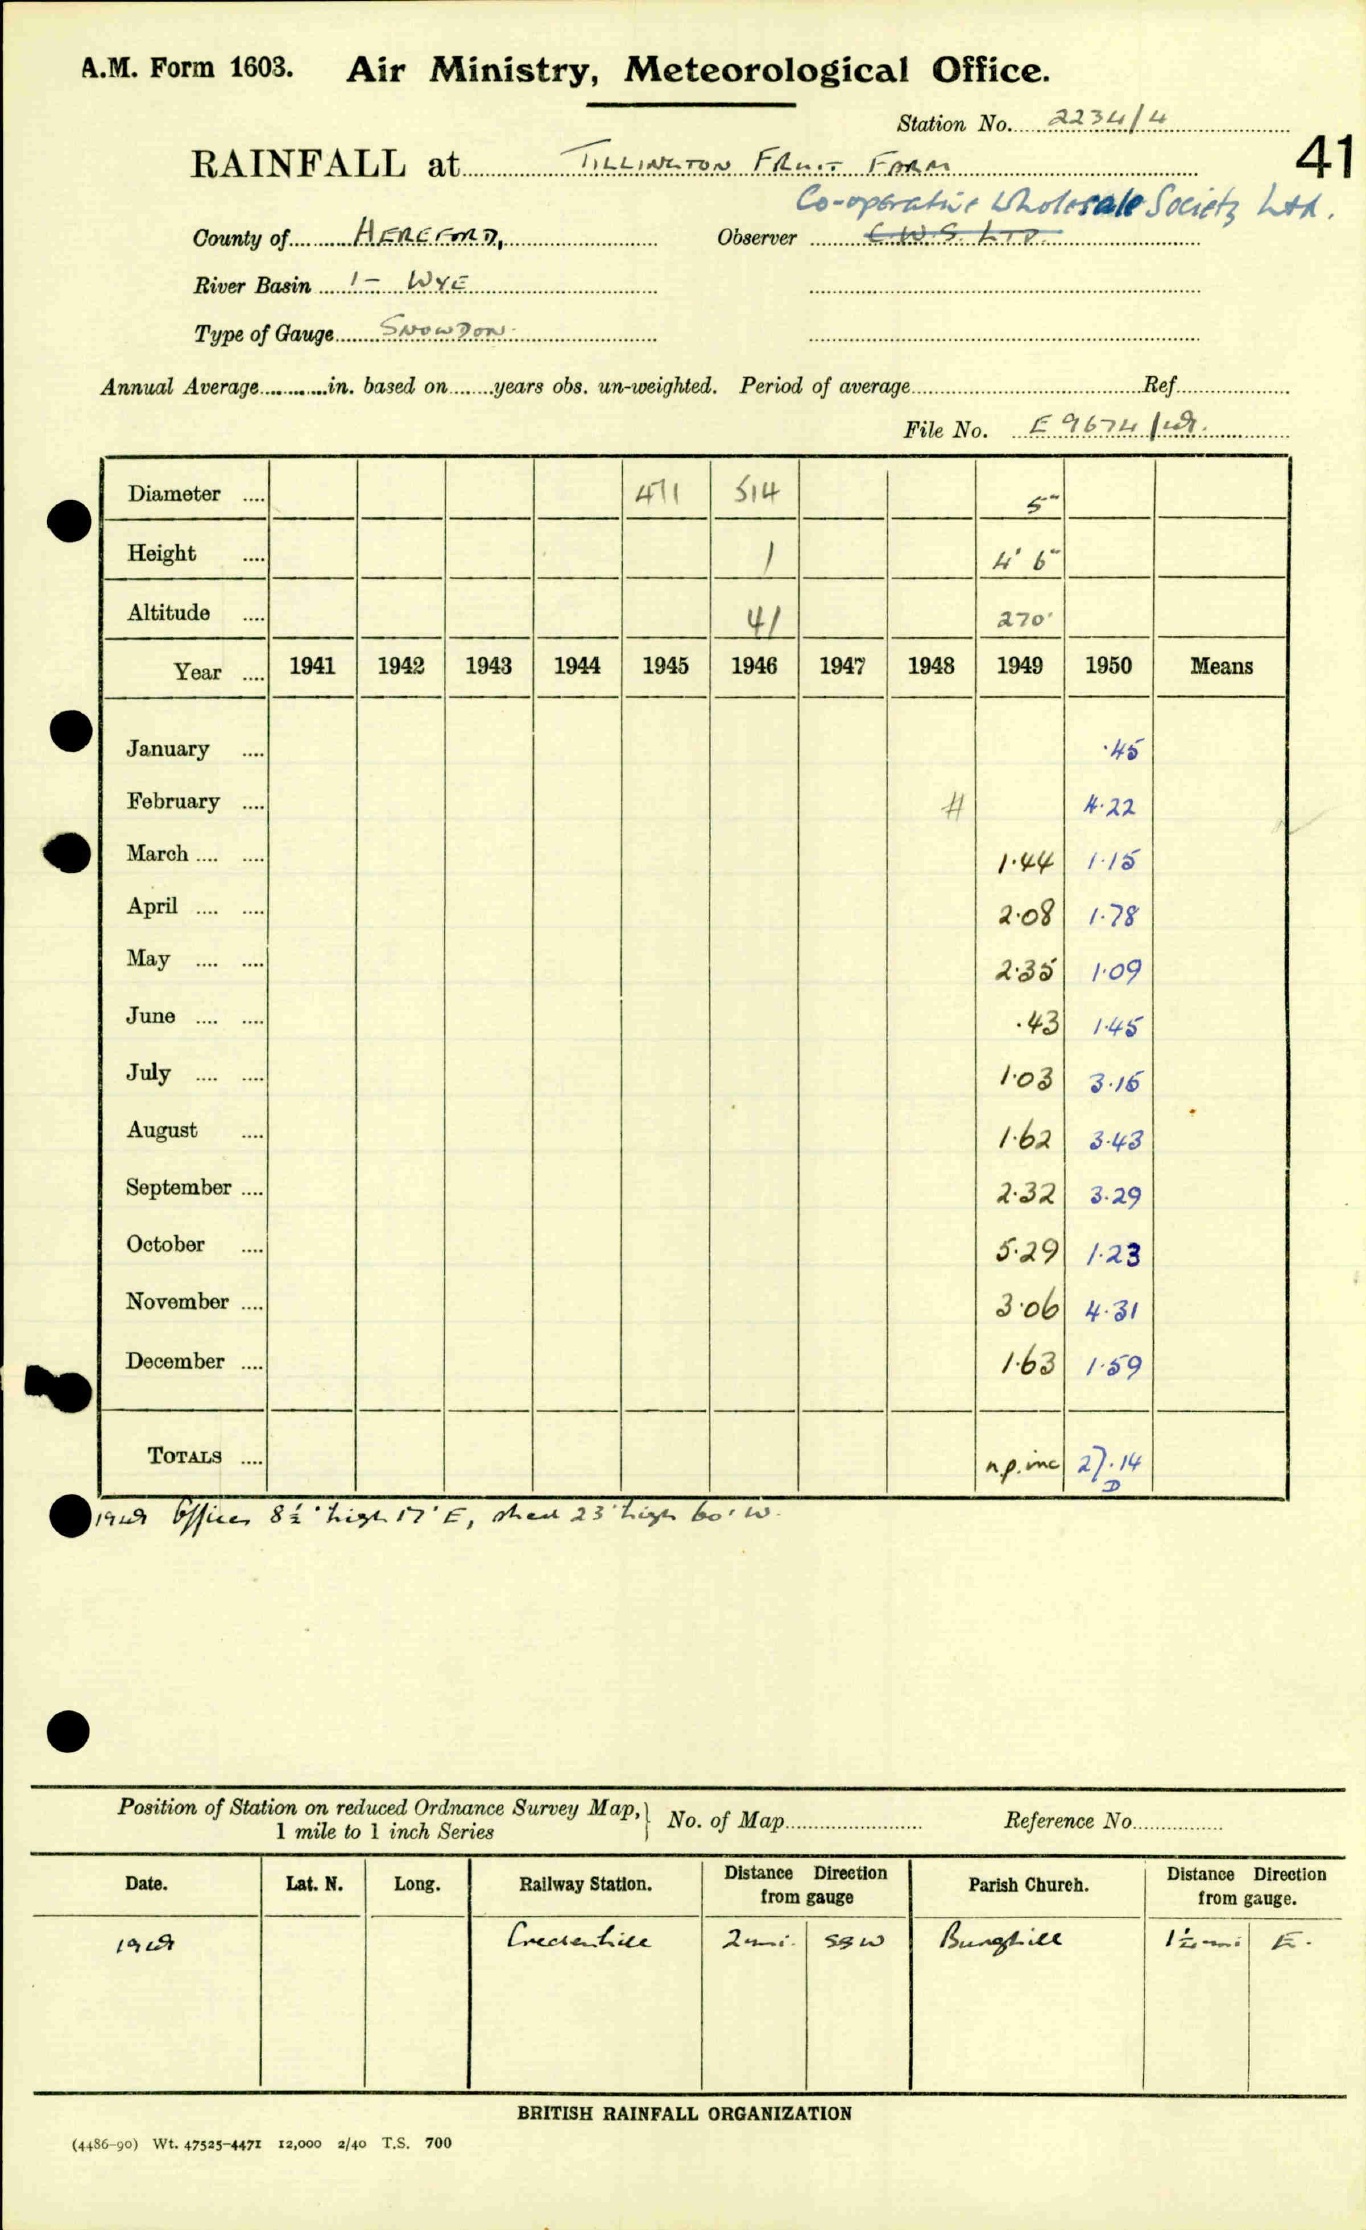 A.M. Form 1603. Air Ministry, Meteorological Office.
Station No. 2234/4
41
RAINFALL at TILLINGTON FRUIT FARM
Co-operative Wholesale Society Ltd.
County of HEREFORD, Observer C.W.S. LTD.
River Basin 1- WYE
Type of Gauge SNOWDON
Annual Average............in. based on........years obs. un-weighted. Period of average............Ref............
File No. E 9674/49.
Diameter .... 471 514 5"
Height .... 1 4' 6"
Altitude .... 41 270'
Year .... 1941 1942 1943 1944 1945 1946 1947 1948 1949 1950 Means
January .... .45
February .... 4.22
March .... .... 1.44 1.15
April .... .... 2.08 1.78
May .... .... 2.35 1.09
June .... .... .43 1.45
July .... .... 1.03 3.16
August .... 1.62 3.43
September .... 2.32 3.29
October .... 5.29 1.23
November .... 3.06 4.31
December .... 1.63 1.59
TOTALS .... n.p. inc 27.14
D
1949 Offices 8½' high 17' E, shed 23' high 60' W.
Position of Station on reduced Ordnance Survey Map, } No. of Map............ Reference No............
1 mile to 1 inch Series
Date. Lat. N. Long. Railway Station. Distance Direction from gauge Parish Church. Distance Direction from gauge.
1949 Credenhill 2 mi. SSW Burghill 1¼ mi E.
BRITISH RAINFALL ORGANIZATION
(4486-90) Wt. 47525-4471 12,000 2/40 T.S. 700